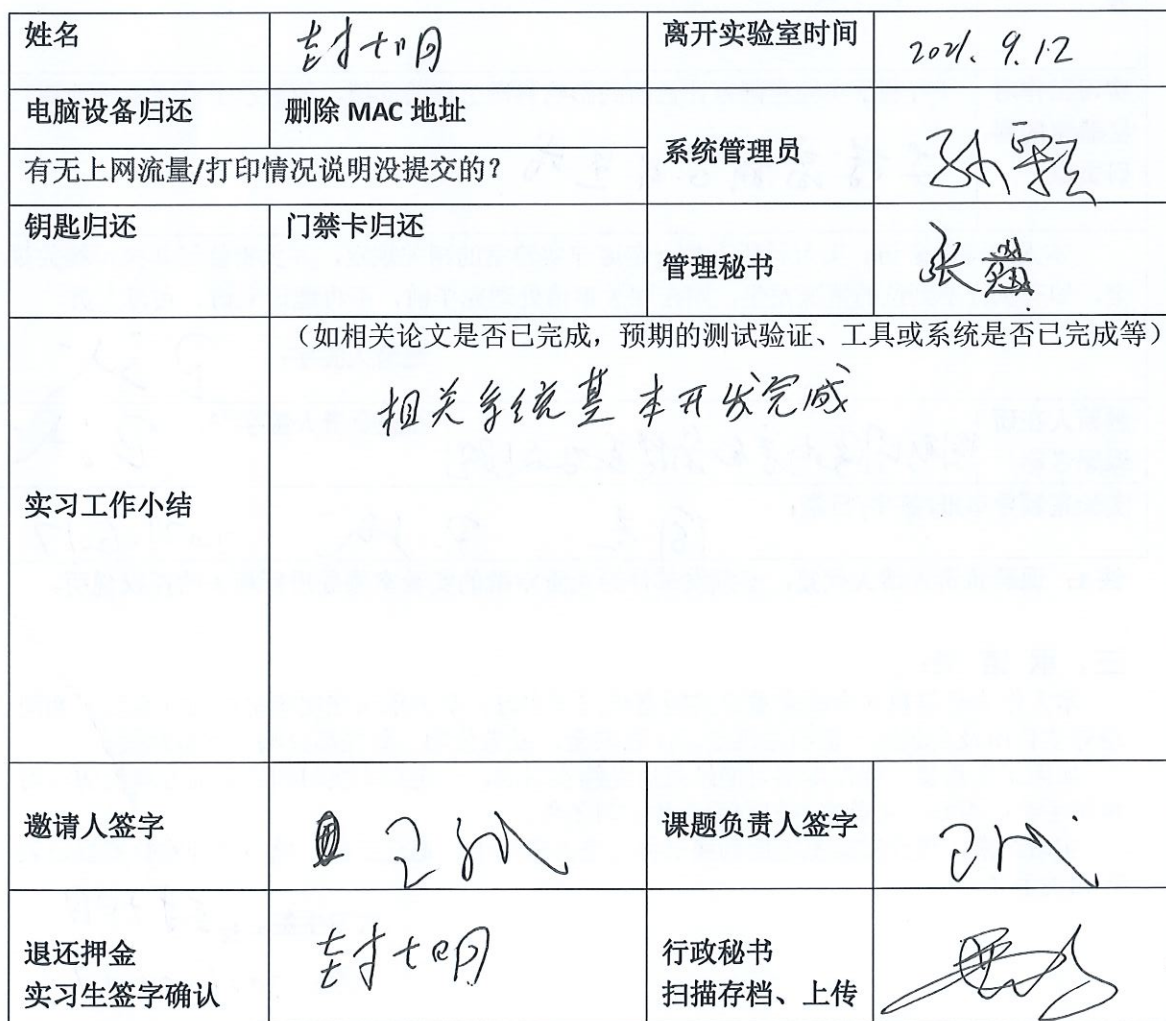 姓名
离开实验室时间
2021. 9.12
电脑设备归还
删除 MAC 地址
系统管理员
孙颖
有无上网流量/打印情况说明没提交的?
钥匙归还
门禁卡归还
管理秘书
张
(如相关论文是否已完成,预期的测试验证、工具或系统是否已完成等)
相关系统基本开发完成
实习工作小结
邀请人签字
课题负责人签字
退还押金
实习生签字确认
行政秘书
扫描存档、上传